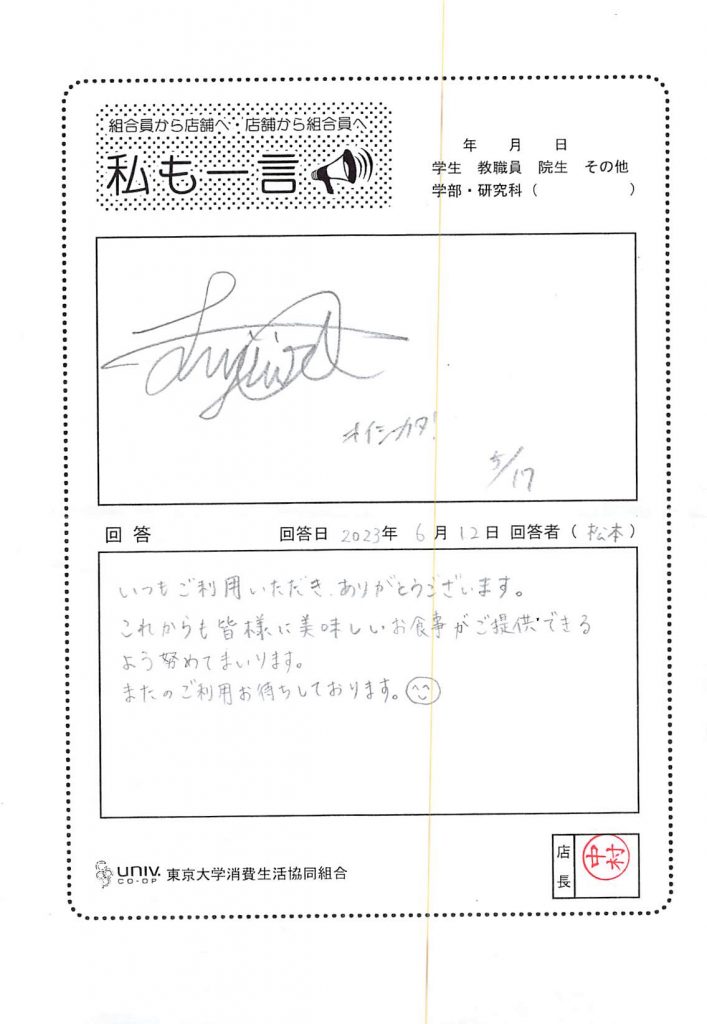 組合員から店舗へ・店舗から組合員へ
私も一言
年 月 日
学生 教職員 院生 その他
学部・研究科（ ）
オイシカタ!
5/17
回答 回答日 2023年 6月12日 回答者（松本）
いつもご利用いただき、ありがとうございます。
これからも皆様に美味しいお食事がご提供できる
よう努めてまいります。
またのご利用お待ちしております。
UNIV. CO-OP 東京大学消費生活協同組合
店長
中村